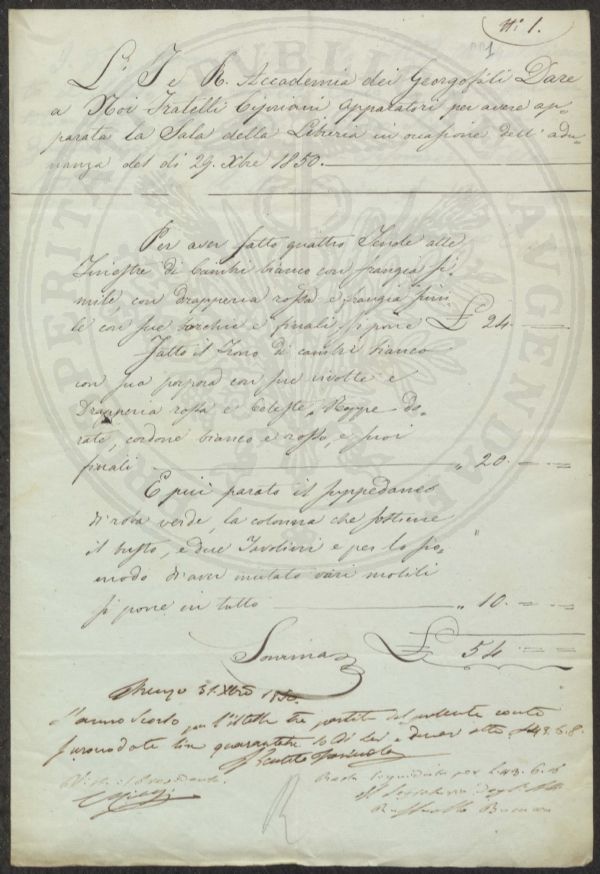 N: 1.
La I e R. Accademia dei Georgofili Dare
a Noi Fratelli Cipriani Apparatori per avere ap=
parata la Sala della Libreria in ocasione dell' adu=
nanza del di 29. Xbre 1850.
Per aver fatto quattro Tende alle
Finestre di Cambrì bianco con frangia si=
mile con drapperia rossa e frangia simi
le con sue torchie e finali si pone £ 24. —
Fatto il Trono di cambrì bianco
con sua porpora con sue rivolte e
Drapperia rossa e Celeste, Reppe do=
rate, cordone bianco e rosso, e suoi
finali " 20. — =
E più parato il suppedaneo
di roba verde, la colonna che sostiene
il busto, e due Tavolini e per lo sco=
modo di aver mutato vari mobili
si pone in tutto " 10. — =
Somma £ 54 = =
Firenze 31. Xbre 1850
L'anno scorso per l'istesse tre partite del presente conto
furono date Lire quarantatre soldi sei e denari otto £ 43. 6. 8.
Visto il Presidente
Resta liquidato per £ 43. 6. 8
Il Segretario degli Atti
PERITA
PUBLIC
AUGENDAE